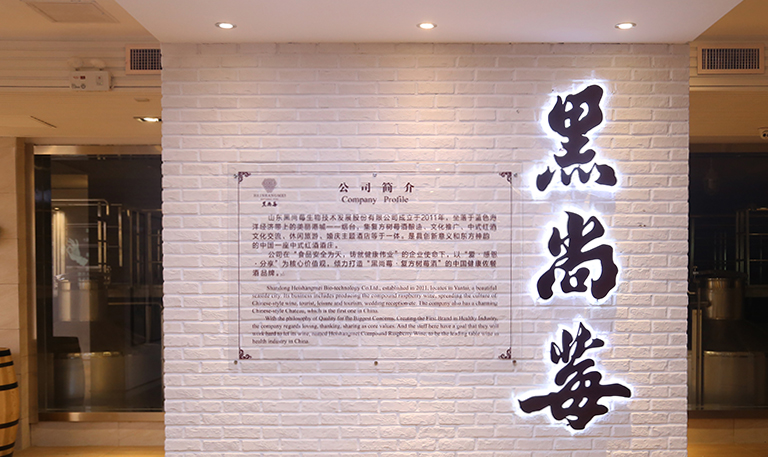 黑尚莓
公司簡介
Company Profile
山东黑尚莓生物技术发展股份有限公司成立于2011年,坐落于蓝色海
洋经济带上的美丽港城——烟台,集复方树莓酒酿造、文化推广、中式红酒
文化交流、休闲旅游、婚庆主题酒店等于一体,是具创新意义和东方神韵
的中国一座中式红酒酒庄。
公司在“食品安全为天,铸就健康伟业”的企业使命下,以“爱·感恩
·分享”为核心价值观,倾力打造“黑尚莓·复方树莓酒”的中国健康佐餐
酒品牌。
Shandong Heishangmei Bio-technology Co.Ltd., established in 2011, locates in Yantai, a beautiful
seaside city. Its business includes producing the compound raspberry wine, spreading the culture of
Chinese-style wine, tourist, leisure and tourism, wedding reception etc. The company also has a charming
Chinese-style Chateau, which is the first one in China.
With the philosophy of Quality for the Biggest Concerns, Creating the First Brand in Healthy Industry,
the company regards loving, thanking, sharing as core values. And the staff here have a goal that they will
work hard to let its wine, named Heishangmei Compound Raspberry Wine, to be the leading table wine in
health industry in China.
黑尚莓